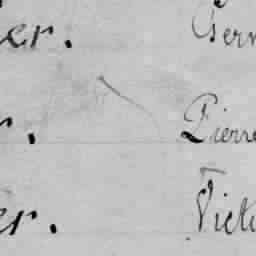 er. Germ
r. Pierre
er. Victo